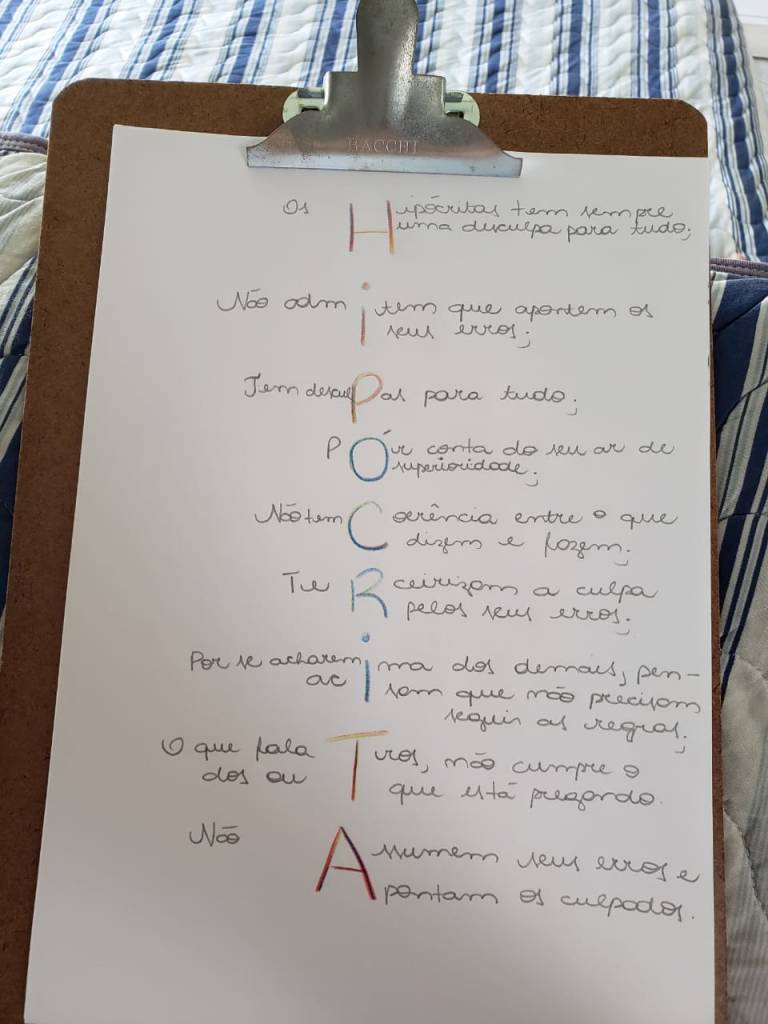 BACCHI
Os Hipócritas tem sempre
uma disculpa para tudo;
Não admitem que apontem os
seus erros;
Tem desculPas para tudo;
PÓr conta do seu ar de
superioridade;
Não tem Coerência entre o que
dizem e fazem;
TeRceirizam a culpa
pelos seus erros;
Por se acharem acima dos demais, pen-
sam que não precisam
seguir as regras;
O que fala dos ouTros, não cumpre o
que está pregando.
Não Assumem seus erros e
Apontam os culpados.